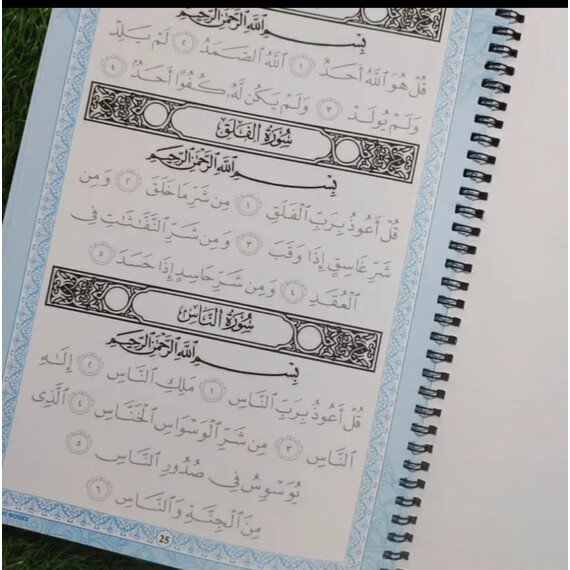 بِسْمِ ٱللَّهِ ٱلرَّحْمَٰنِ ٱلرَّحِيمِ
قُلْ هُوَ ٱللَّهُ أَحَدٌ ١ ٱللَّهُ ٱلصَّمَدُ ٢ لَمْ يَلِدْ
وَلَمْ يُولَدْ ٣ وَلَمْ يَكُن لَّهُۥ كُفُوًا أَحَدٌۢ ٤
سُورَةُ الفَلَقِ
بِسْمِ ٱللَّهِ ٱلرَّحْمَٰنِ ٱلرَّحِيمِ
قُلْ أَعُوذُ بِرَبِّ ٱلْفَلَقِ ١ مِن شَرِّ مَا خَلَقَ ٢ وَمِن
شَرِّ غَاسِقٍ إِذَا وَقَبَ ٣ وَمِن شَرِّ ٱلنَّفَّٰثَٰتِ فِى
ٱلْعُقَدِ ٤ وَمِن شَرِّ حَاسِدٍ إِذَا حَسَدَ ٥
سُورَةُ النَّاسِ
بِسْمِ ٱللَّهِ ٱلرَّحْمَٰنِ ٱلرَّحِيمِ
قُلْ أَعُوذُ بِرَبِّ ٱلنَّاسِ ١ مَلِكِ ٱلنَّاسِ ٢ إِلَٰهِ
ٱلنَّاسِ ٣ مِن شَرِّ ٱلْوَسْوَاسِ ٱلْخَنَّاسِ ٤ ٱلَّذِى
يُوَسْوِسُ فِى صُدُورِ ٱلنَّاسِ ٥
مِنَ ٱلْجِنَّةِ وَٱلنَّاسِ ٦
25
BOOKS